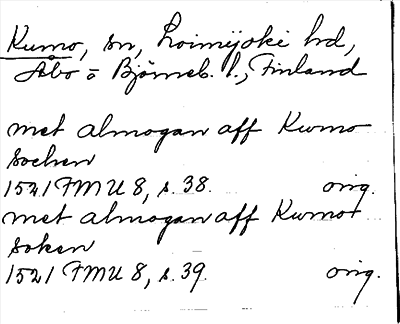 Kumo, sn, Loimijoki hd,
Åbo o Björneb. l., Finland
met almogan aff Kwmo
sochen
1521 FMU 8, s. 38. orig.
met almogan aff Kwmo
soken
1521 FMU 8, s. 39. orig.